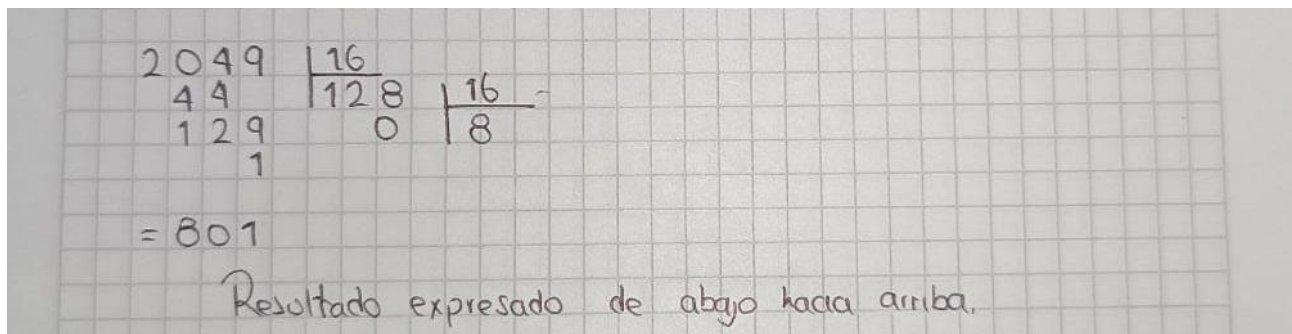 2049 16
44 128 16
129 0 8
1
= 801
Resultado expresado de abajo hacia arriba.